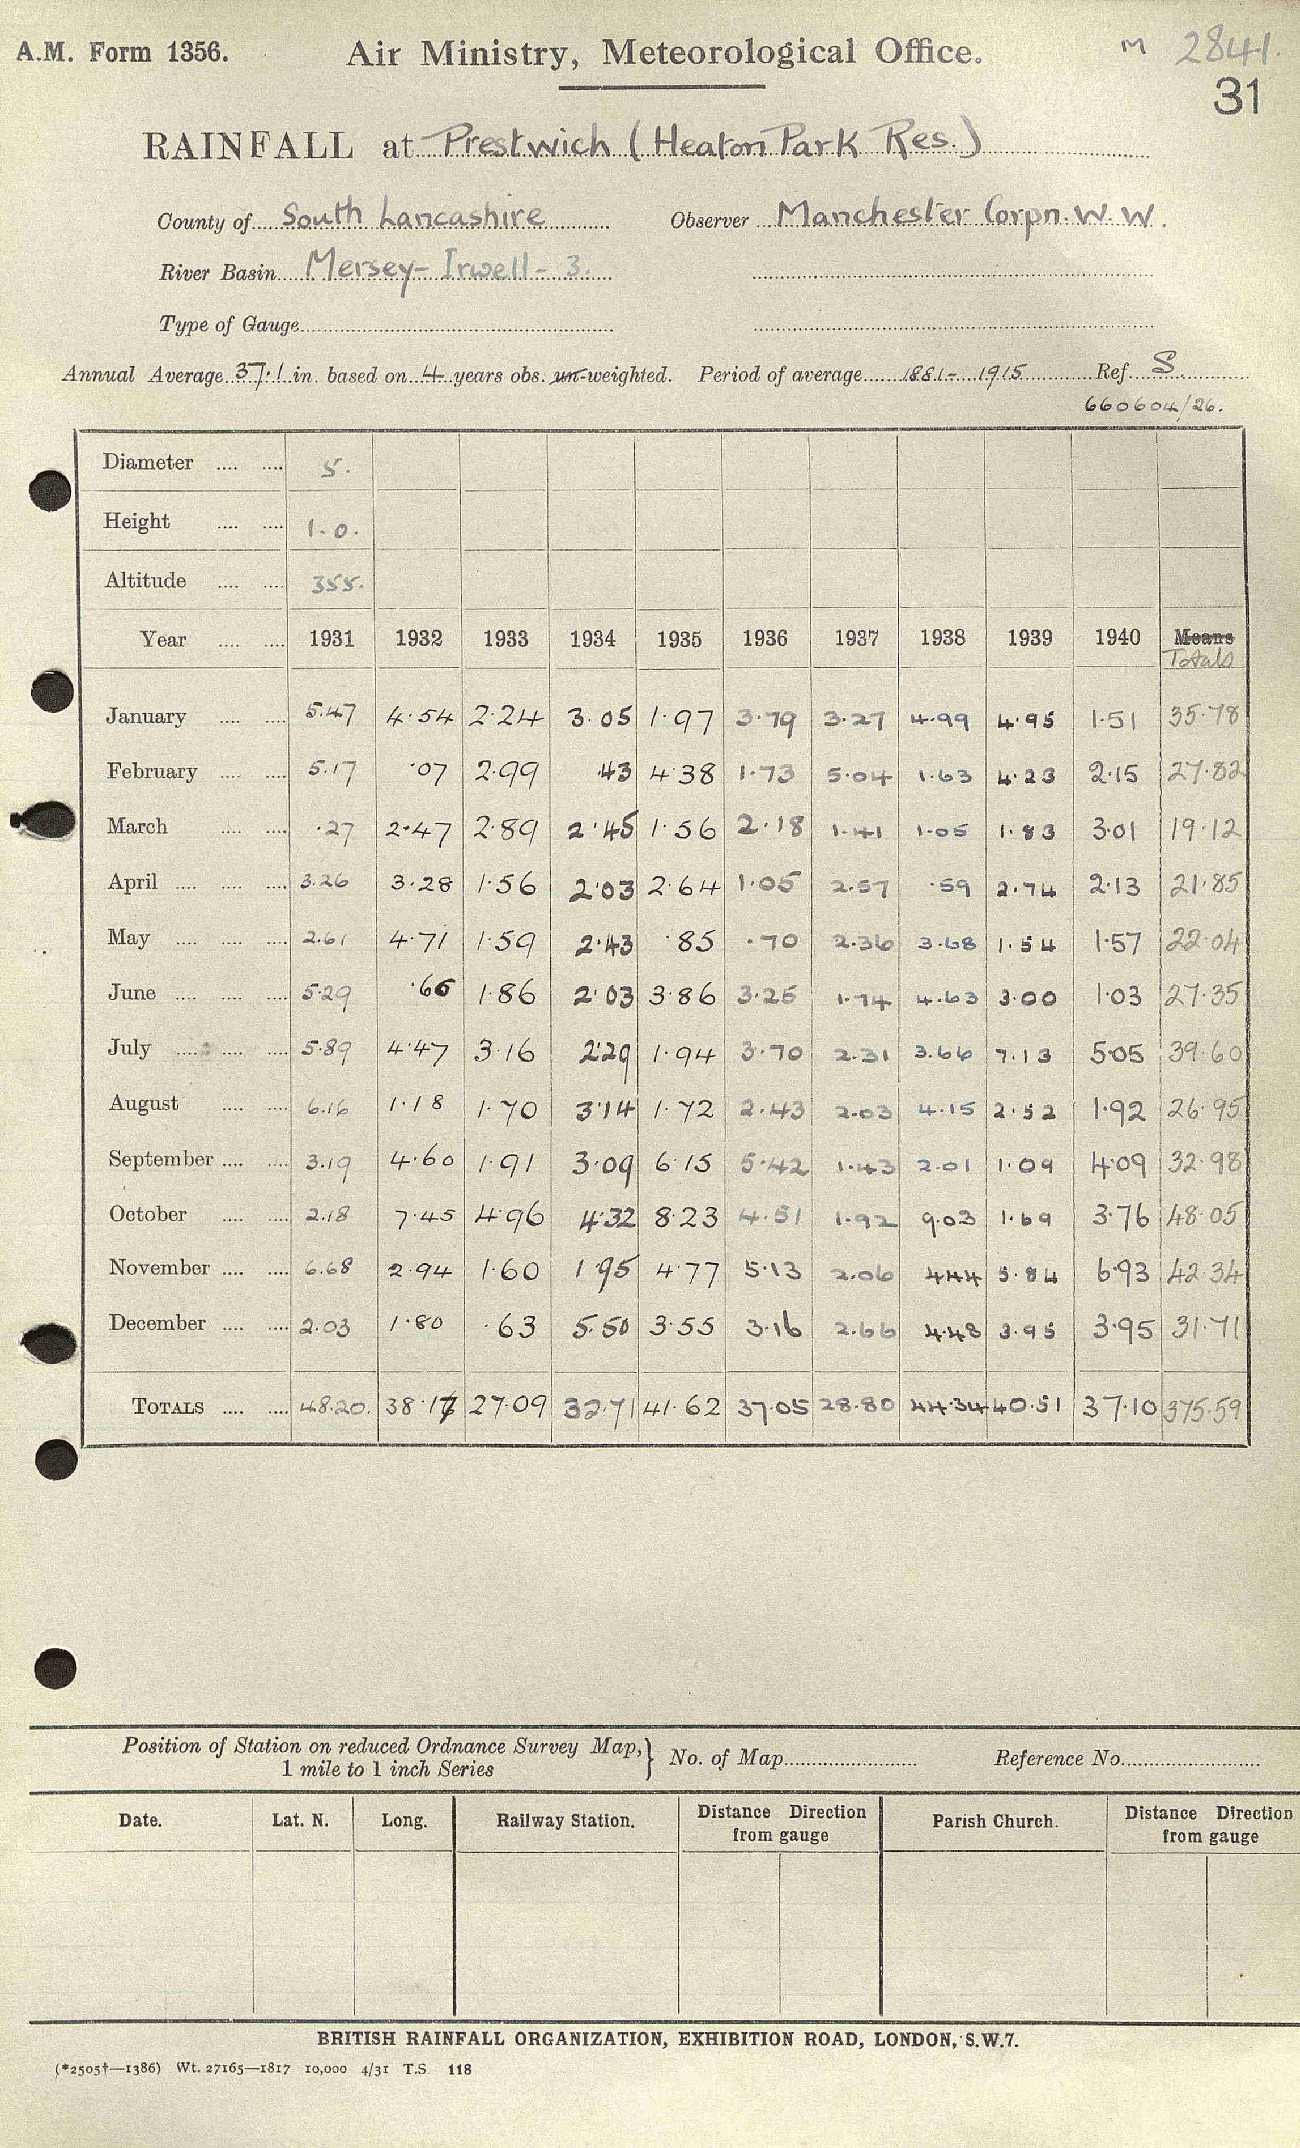 A.M. Form 1356.
Air Ministry, Meteorological Office.
M 2841.
31
RAINFALL at Prestwich (Heaton Park Res.)
County of South Lancashire Observer Manchester Corpn. W.W.
River Basin Mersey - Irwell - 3.
Type of Gauge
Annual Average 37.1 in. based on 4 years obs. un-weighted. Period of average 1881 - 1915 Ref. S
660604/26.
Diameter 5.
Height 1.0.
Altitude 355.
Year 1931 1932 1933 1934 1935 1936 1937 1938 1939 1940 Means
Totals
January 5.47 4.54 2.24 3.05 1.97 3.79 3.27 4.99 4.95 1.51 35.78
February 5.17 .07 2.99 .43 4.38 1.73 5.04 1.63 4.23 2.15 27.82
March .27 2.47 2.89 2.45 1.56 2.18 1.41 1.05 1.83 3.01 19.12
April 3.26 3.28 1.56 2.03 2.64 1.05 2.57 .59 2.74 2.13 21.85
May 2.61 4.71 1.59 2.43 .85 .70 2.36 3.68 1.54 1.57 22.04
June 5.29 .66 1.86 2.03 3.86 3.25 1.74 4.63 3.00 1.03 27.35
July 5.89 4.47 3.16 2.29 1.94 3.70 2.31 3.66 7.13 5.05 39.60
August 6.16 1.18 1.70 3.14 1.72 2.43 2.03 4.15 2.52 1.92 26.95
September 3.19 4.60 1.91 3.09 6.15 5.42 1.43 2.01 1.09 4.09 32.98
October 2.18 7.45 4.96 4.32 8.23 4.51 1.92 9.03 1.69 3.76 48.05
November 6.68 2.94 1.60 1.95 4.77 5.13 2.06 4.44 5.84 6.93 42.34
December 2.03 1.80 .63 5.50 3.55 3.16 2.66 4.48 3.95 3.95 31.71
TOTALS 48.20. 38.17 27.09 32.71 41.62 37.05 28.80 44.34 40.51 37.10 375.59
Position of Station on reduced Ordnance Survey Map, 1 mile to 1 inch Series } No. of Map Reference No.
Date. Lat. N. Long. Railway Station. Distance Direction from gauge Parish Church. Distance Direction from gauge
BRITISH RAINFALL ORGANIZATION, EXHIBITION ROAD, LONDON, S.W.7.
(*2505†—1386) Wt. 27165—1817 10,000 4/31 T.S. 118